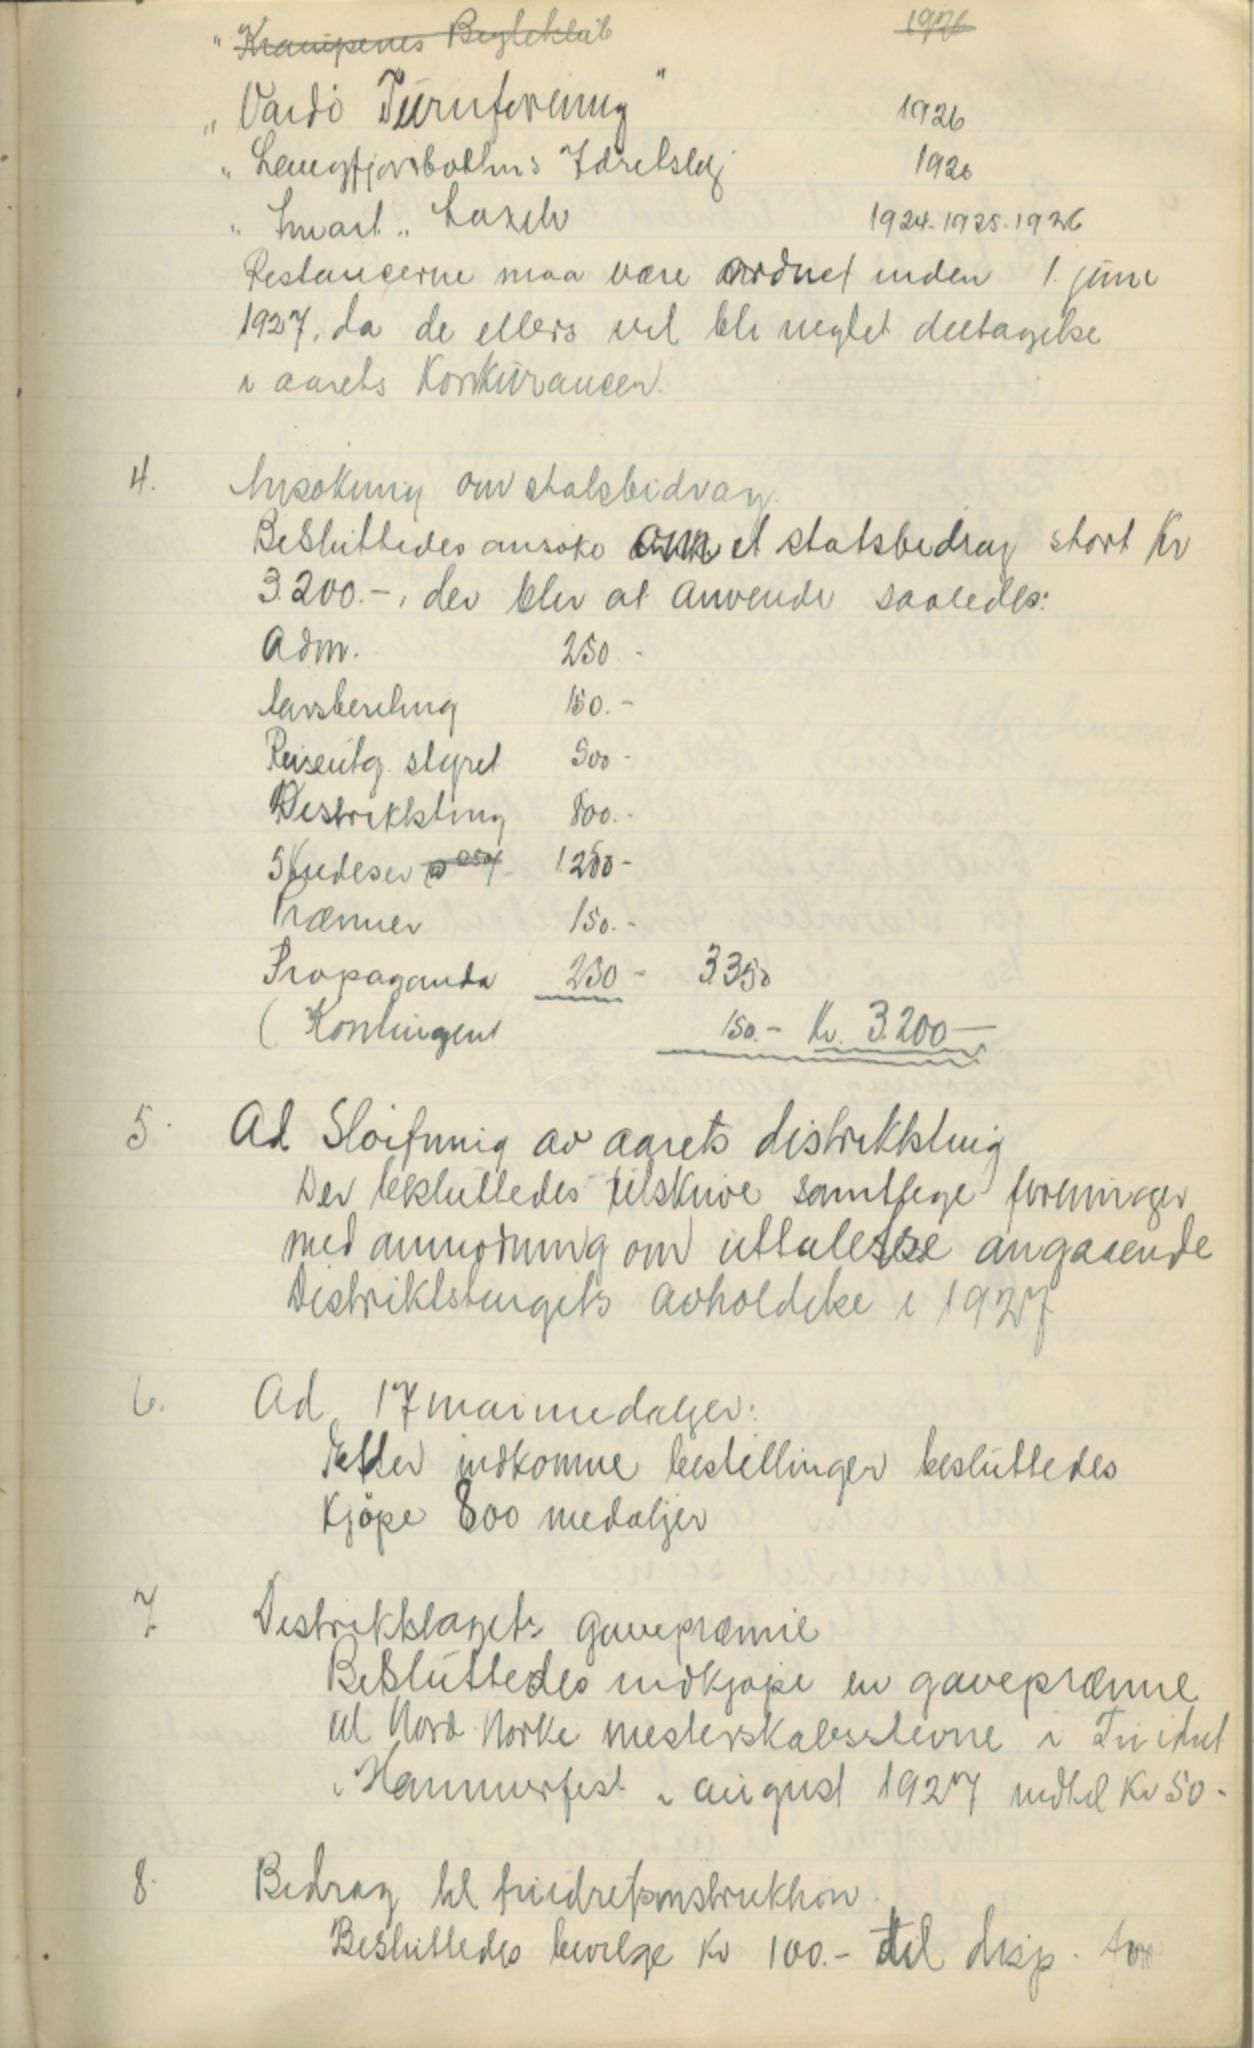 " Krampenes Bryteklub 1926
" Vardö Turnforening " 1926
" Langfjordbotns Idrætslag 1926
" Snart " Laxelv 1924. 1925. 1926
Restancerne maa være ordnet inden 1. juni
1927, da de ellers vil bli neglet deltagelse
i aarets Konkurancer.
4. Ansøkning om statsbidrag.
Besluttedes ansøke om et statsbidrag stort Kr
3.200.-, der blir at anvende saaledes:
Adm. 250 -
Aarsberetning 150. -
Reiseutg. styret 500 -
Distriktsting 800. -
5 Kredser a 250/- 1250 -
Præmier 150. -
Propaganda 250 - 3350
( Kontingent 150.- Kr. 3.200 —
5. Ad Sløifning av aarets distriktsting
Der besluttedes tilskrive samtlige foreninger
med anmodning om uttalelse angaaende
Distriktstingets avholdelse i 1927
6. Ad 17 mai medaljer:
Efter indkomne bestillinger besluttedes
Kjøpe 800 medaljer
7. Distriktslagets gavepræmie
Besluttedes indkjøpe en gavepræmie
til Nord-Norske mesterskabsstevne i Fri idræt
i Hammerfest i august 1927 indtil Kr 50 -
8. Bidrag til friidretsinstruktion.
Besluttedes bevilge Kr 100.- til disp. for